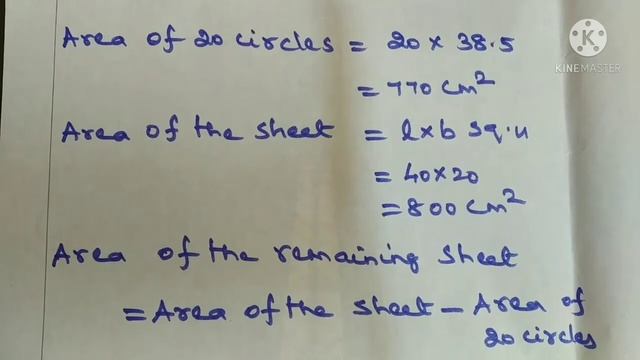 Area of 20 circles = 20 × 38.5
= 770 cm²
Area of the sheet = l×b sq.u
= 40×20
= 800 cm²
Area of the remaining sheet
= Area of the sheet – Area of
20 circles
K
KINEMASTER